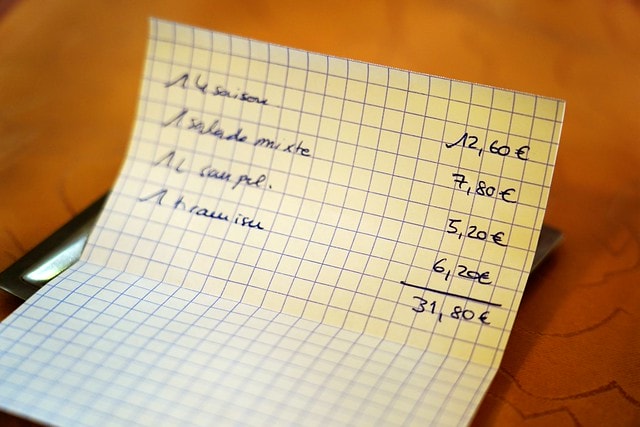 1 4 saison 12,60€
1 salade mixte 7,80€
1 L San pel. 5,20€
1 tiramisu 6,20€
31,80€